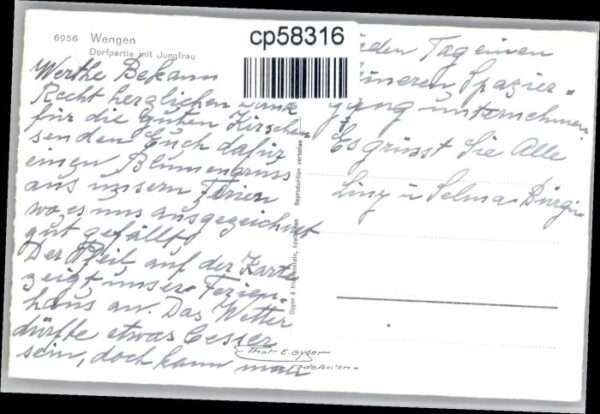 6956 Wengen
Dorfpartie mit Jungfrau
cp58316
Werthe Bekann
Recht herzlichen Dank
für die guten Kirschen
senden Euch dafür
einen Blumengruss
aus unsern Ferien
wo es uns ausgezeichnet
gut gefällt
Der Pfeil auf der Karte
zeigt unser Ferien-
haus an. Das Wetter
dürfte etwas besser
sein, doch kann man
jeden Tag einen
kleineren Spazier-
gang unternehmen
Es grüsst Sie Alle
Liny u Selma Bürgin
Reproduktion verboten
Phot. E. Gyger
Adelboden